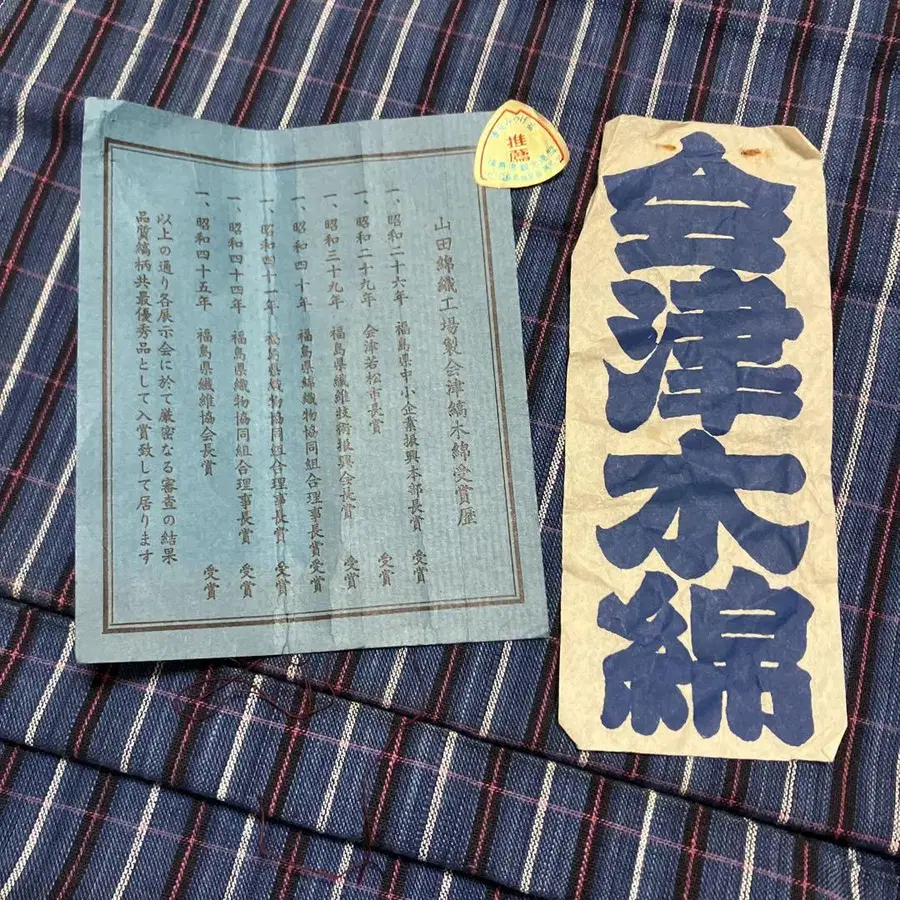 山田綿織工場製会津縞木綿受賞歴
一、昭和二十六年 福島県中小企業振興本部長賞 受賞
一、昭和二十九年 会津若松市長賞 受賞
一、昭和三十九年 福島県繊維技術振興会長賞 受賞
一、昭和四十年 福島県綿織物協同組合理事長賞 受賞
一、昭和四十一年 福島県織物協同組合理事長賞 受賞
一、昭和四十四年 福島県織物協同組合理事長賞 受賞
一、昭和四十五年 福島県繊維協会長賞 受賞
以上の通り各展示会に於て厳密なる審査の結果
品質縞柄共最優秀品として入賞致して居ります
推薦
会津木綿